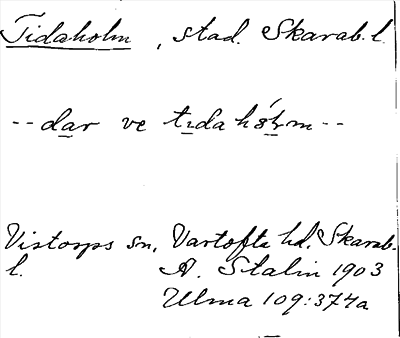 Tidaholm, stad. Skarab. l.
-- dar ve tɪdahólm --
Vistorps sn, Vartofta hd, Skarab.
l. A. Stalin 1903
Ulma 109:374a